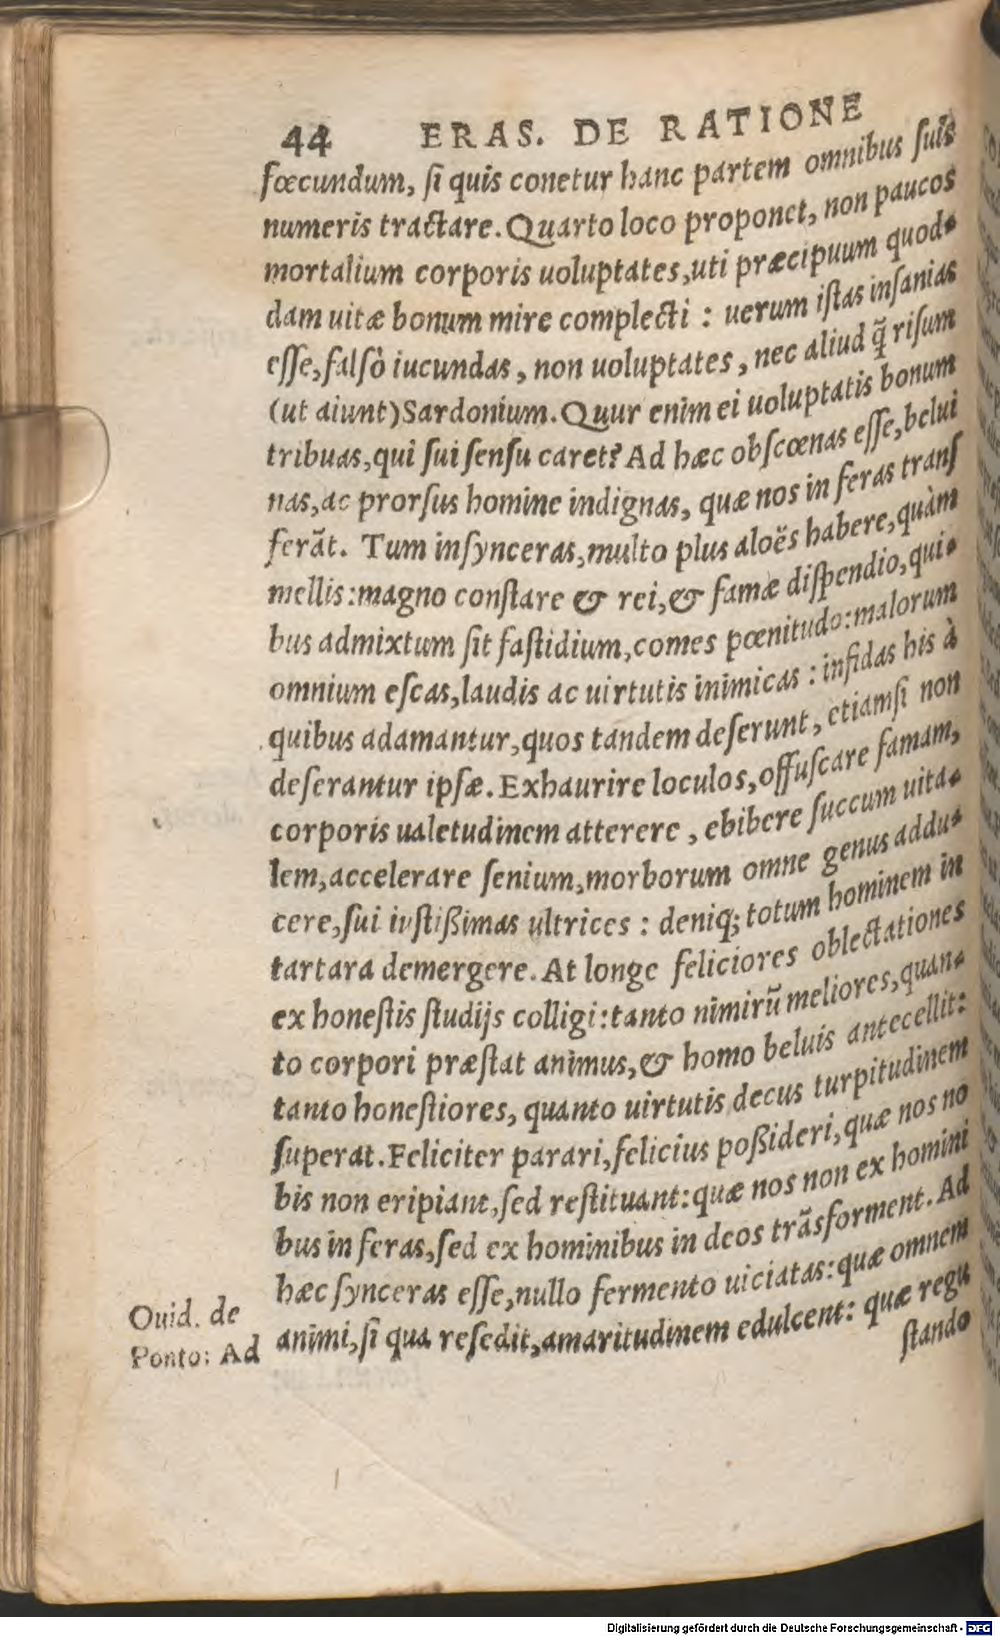 44 ERAS. DE RATIONE
fœcundum, ſi quis conetur hanc partem omnibus ſuis
numeris tractare. Quarto loco proponet, non paucos
mortalium corporis uoluptates, uti præcipuum quod-
dam uitæ bonum mire complecti : uerum iſtas inſanias
eſſe, falſò iucundas, non uoluptates, nec aliud q̃ riſum
(ut aiunt) Sardonium. Quur enim ei uoluptatis bonum
tribuas, qui ſui ſenſu caret? Ad hæc obſcœnas eſſe, belui
nas, ac prorſus homine indignas, quæ nos in feras tranſ
ferãt. Tum inſynceras, multo plus aloës habere, quàm
mellis: magno conſtare & rei, & famæ diſpendio, qui-
bus admixtum ſit faſtidium, comes pœnitudo: malorum
omnium eſcas, laudis ac uirtutis inimicas : infidas his à
quibus adamantur, quos tandem deſerunt, etiamſi non
deſerantur ipſæ. Exhaurire loculos, offuſcare famam,
corporis ualetudinem atterere, ebibere ſuccum uita-
lem, accelerare ſenium, morborum omne genus addu-
cere, ſui iuſtißimas ultrices : deniq; totum hominem in
tartara demergere. At longe feliciores oblectationes
ex honeſtis ſtudijs colligi: tanto nimirũ meliores, quan-
to corpori præſtat animus, & homo beluis antecellit:
tanto honeſtiores, quanto uirtutis decus turpitudinem
ſuperat. Feliciter parari, felicius poßideri, quæ nos no
bis non eripiant, ſed reſtituant: quæ nos non ex homini
bus in feras, ſed ex hominibus in deos trãsforment. Ad
hæc ſynceras eſſe, nullo fermento uiciatas: quæ omnem
animi, ſi qua reſedit, amaritudinem edulcent: quæ regu
ſtando
Ouid. de
Ponto: Ad
Digitalisierung gefördert durch die Deutsche Forschungsgemeinschaft - DFG